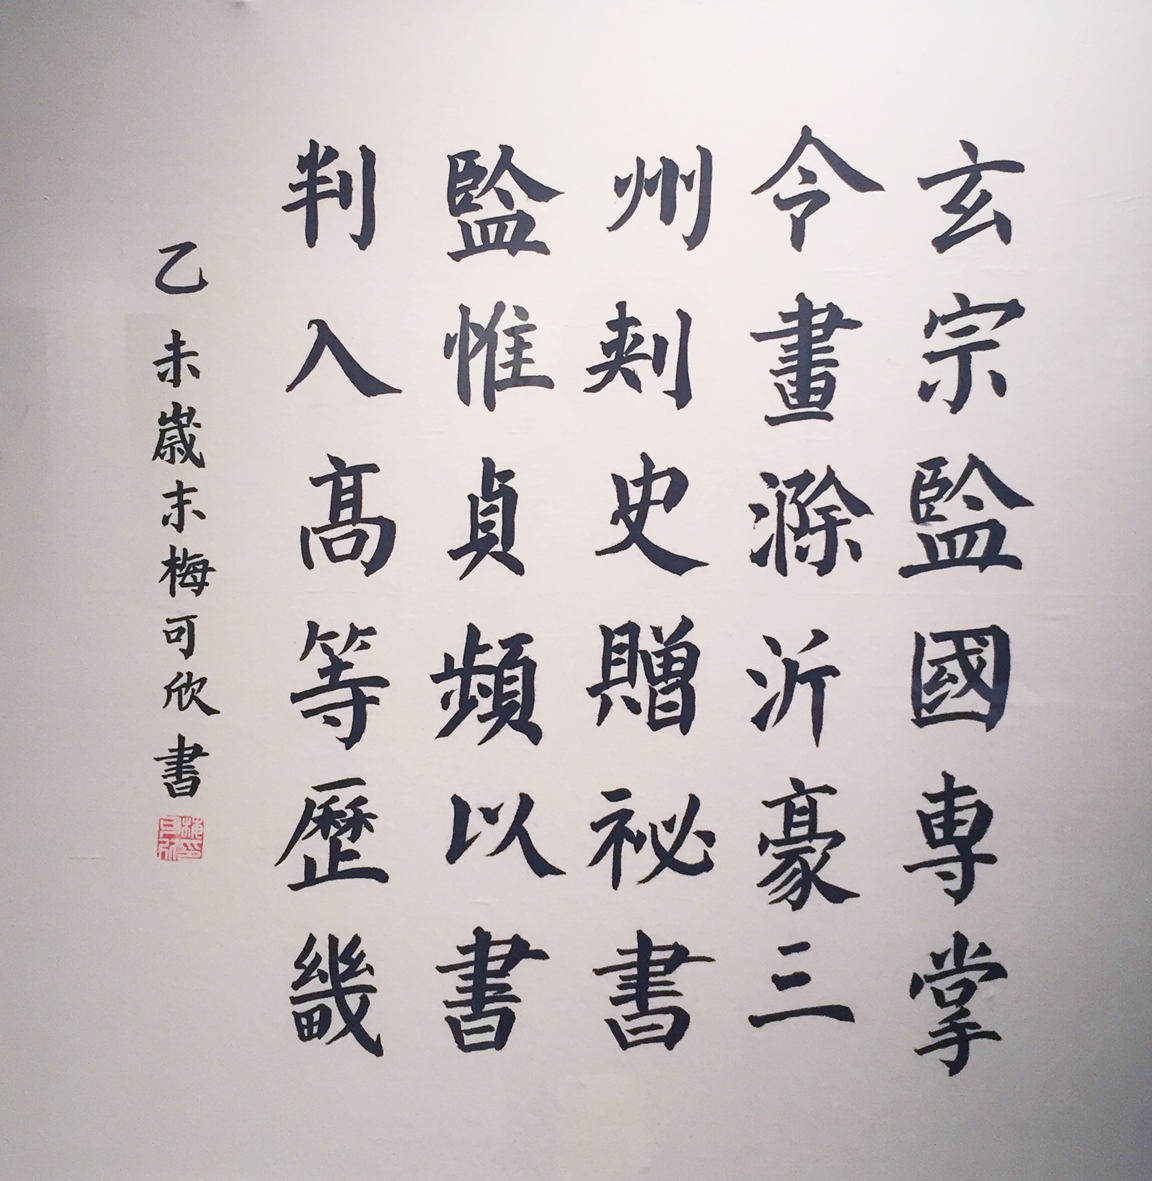 玄宗監國專掌
令畫滁沂豪三
州刾史贈祕書
監惟貞頻以書
判入髙等歷畿
乙未歲末梅可欣書